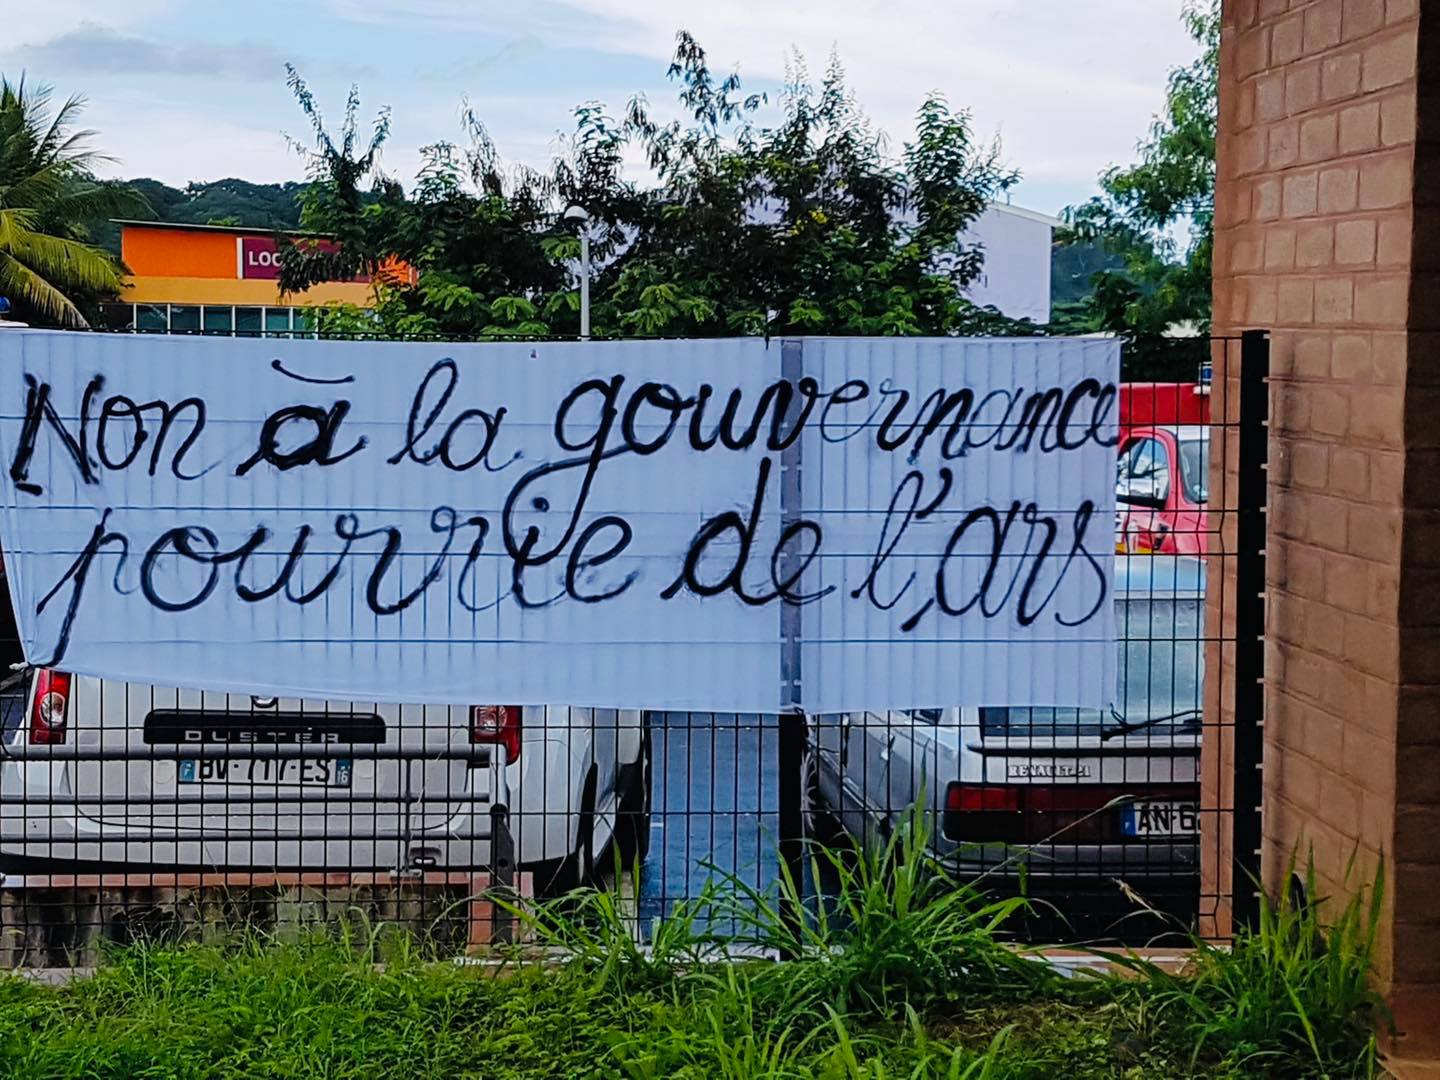 LOC
Non à la gouvernance
pourrie de l'ars
DUSTER
BV-717-ES
RENAULT 21
AN-6